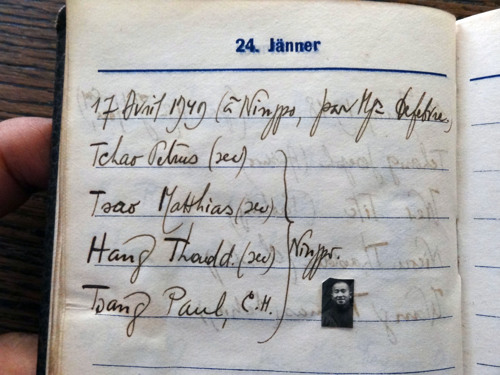 24. Jänner
17 Avril 1949 (à Ningpo, par Mgr Defebvre)
Tchao Petrus (sec)
Tsao Matthias (sec)
Hang Thadd. (sec)
Ningpo.
Tsang Paul, C.M.